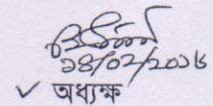 ১৪/০২/২০১৬
✓ অধ্যক্ষ